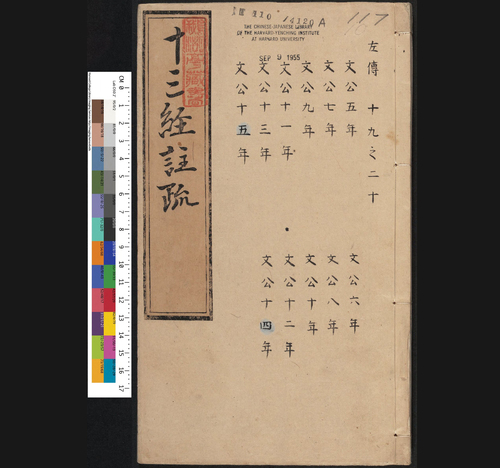 117
110 14120A
THE CHINESE-JAPANESE LIBRARY
OF THE HARVARD-YENCHING INSTITUTE
AT HARVARD UNIVERSITY
SEP 9 1955
左傳 十九之二十
文公五年 文公六年
文公七年 文公八年
文公九年 文公十年
文公十一年 文公十二年
文公十三年 文公十四年
文公十五年
十三經註疏
CM 0 1 2 3 4 5 6 7 8 9 10 11 12 13 14 15 16 17